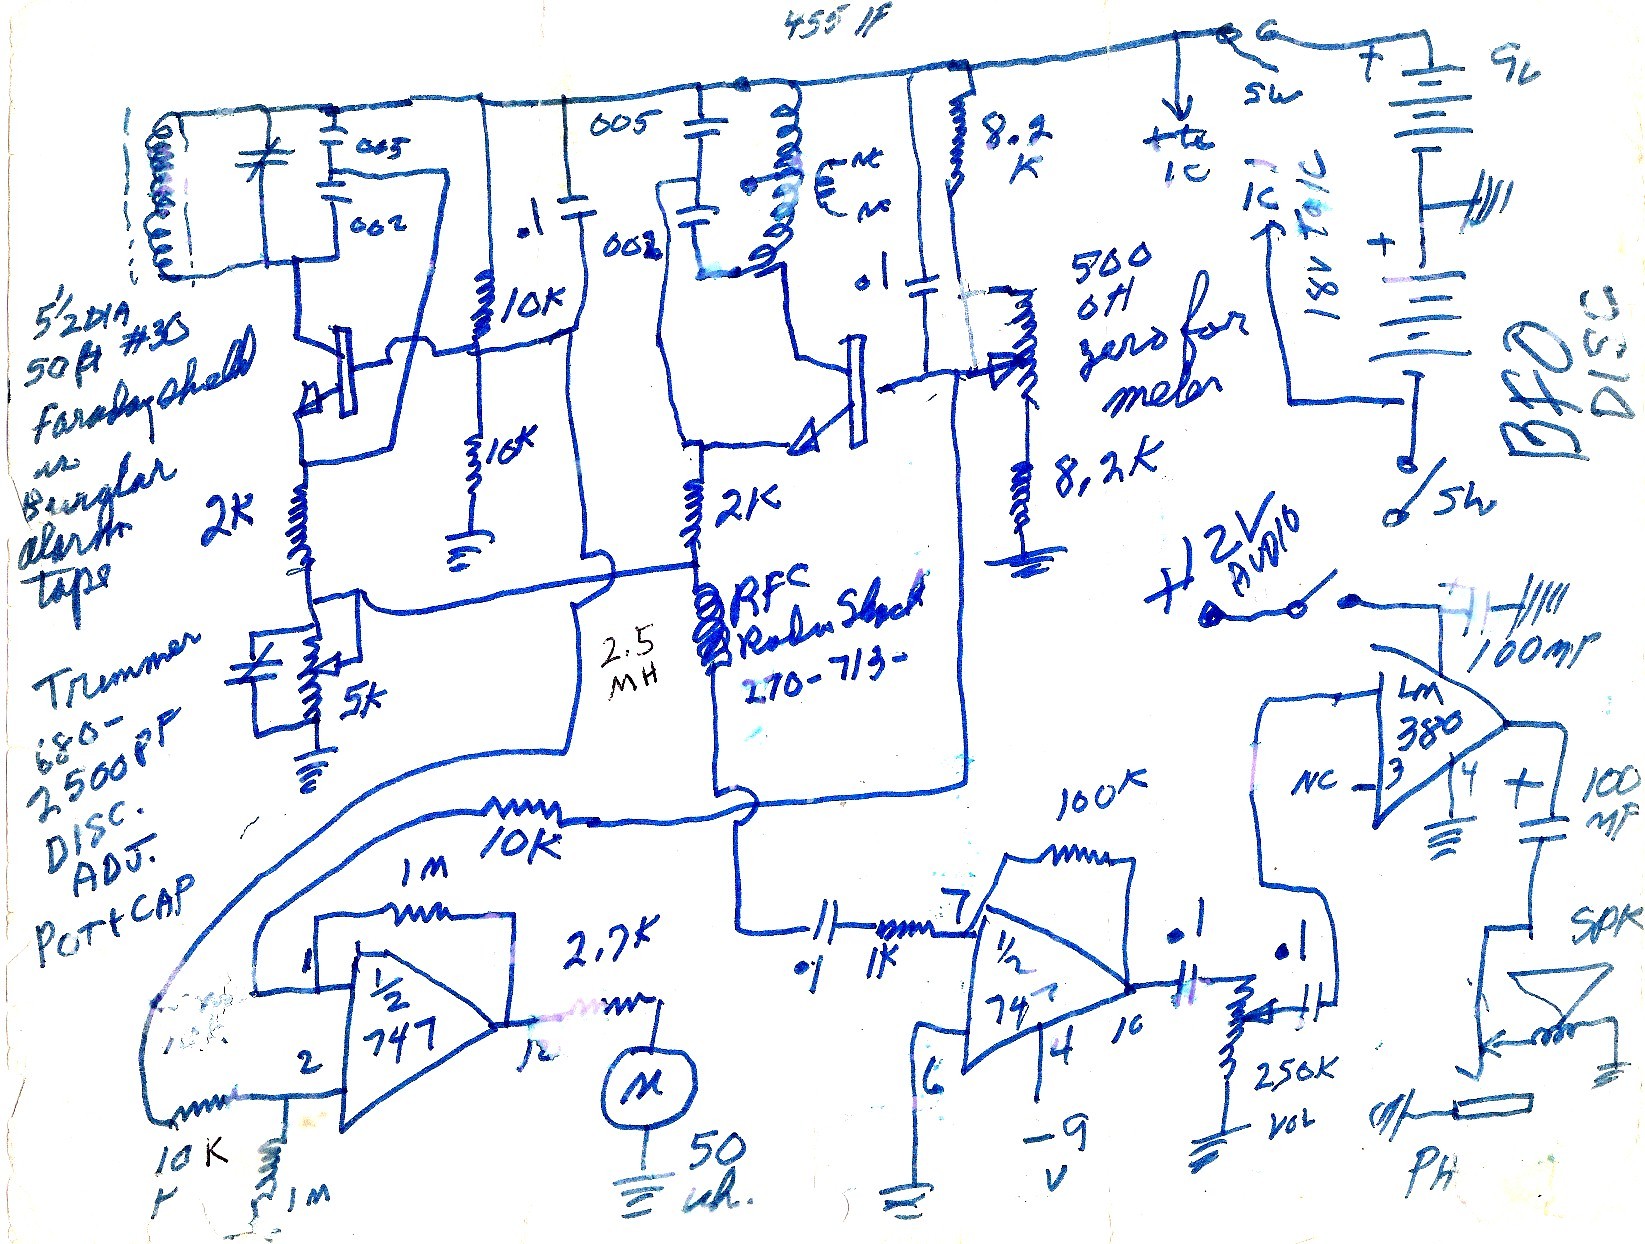 455 IF
9V
+
SW
8.2
K
+ to
IC
005
005
002
002
.1
NC
NC
IC
18V To IC
+
10K
.1
500
OH
zero for
meter
BFO
DISC
5 1/2 DIA
50ft #30
Faraday Shield
in
Burglar
alarm
tape
2K
10K
2K
8.2K
SW
+12V
AUDIO
RFC
Radio Shack
270-713-
2.5
MH
100MF
Trimmer
680-
2500PF
DISC.
ADJ.
POT + CAP
5K
LM
380
NC
3
4
+
100
MF
10K
100K
1M
1
1/2
747
2
12
2.7K
M
50
10K
1M
.1
1K
7
1/2
747
6
4
10
-9
V
.1
.1
250K
VOL
SPK
PH